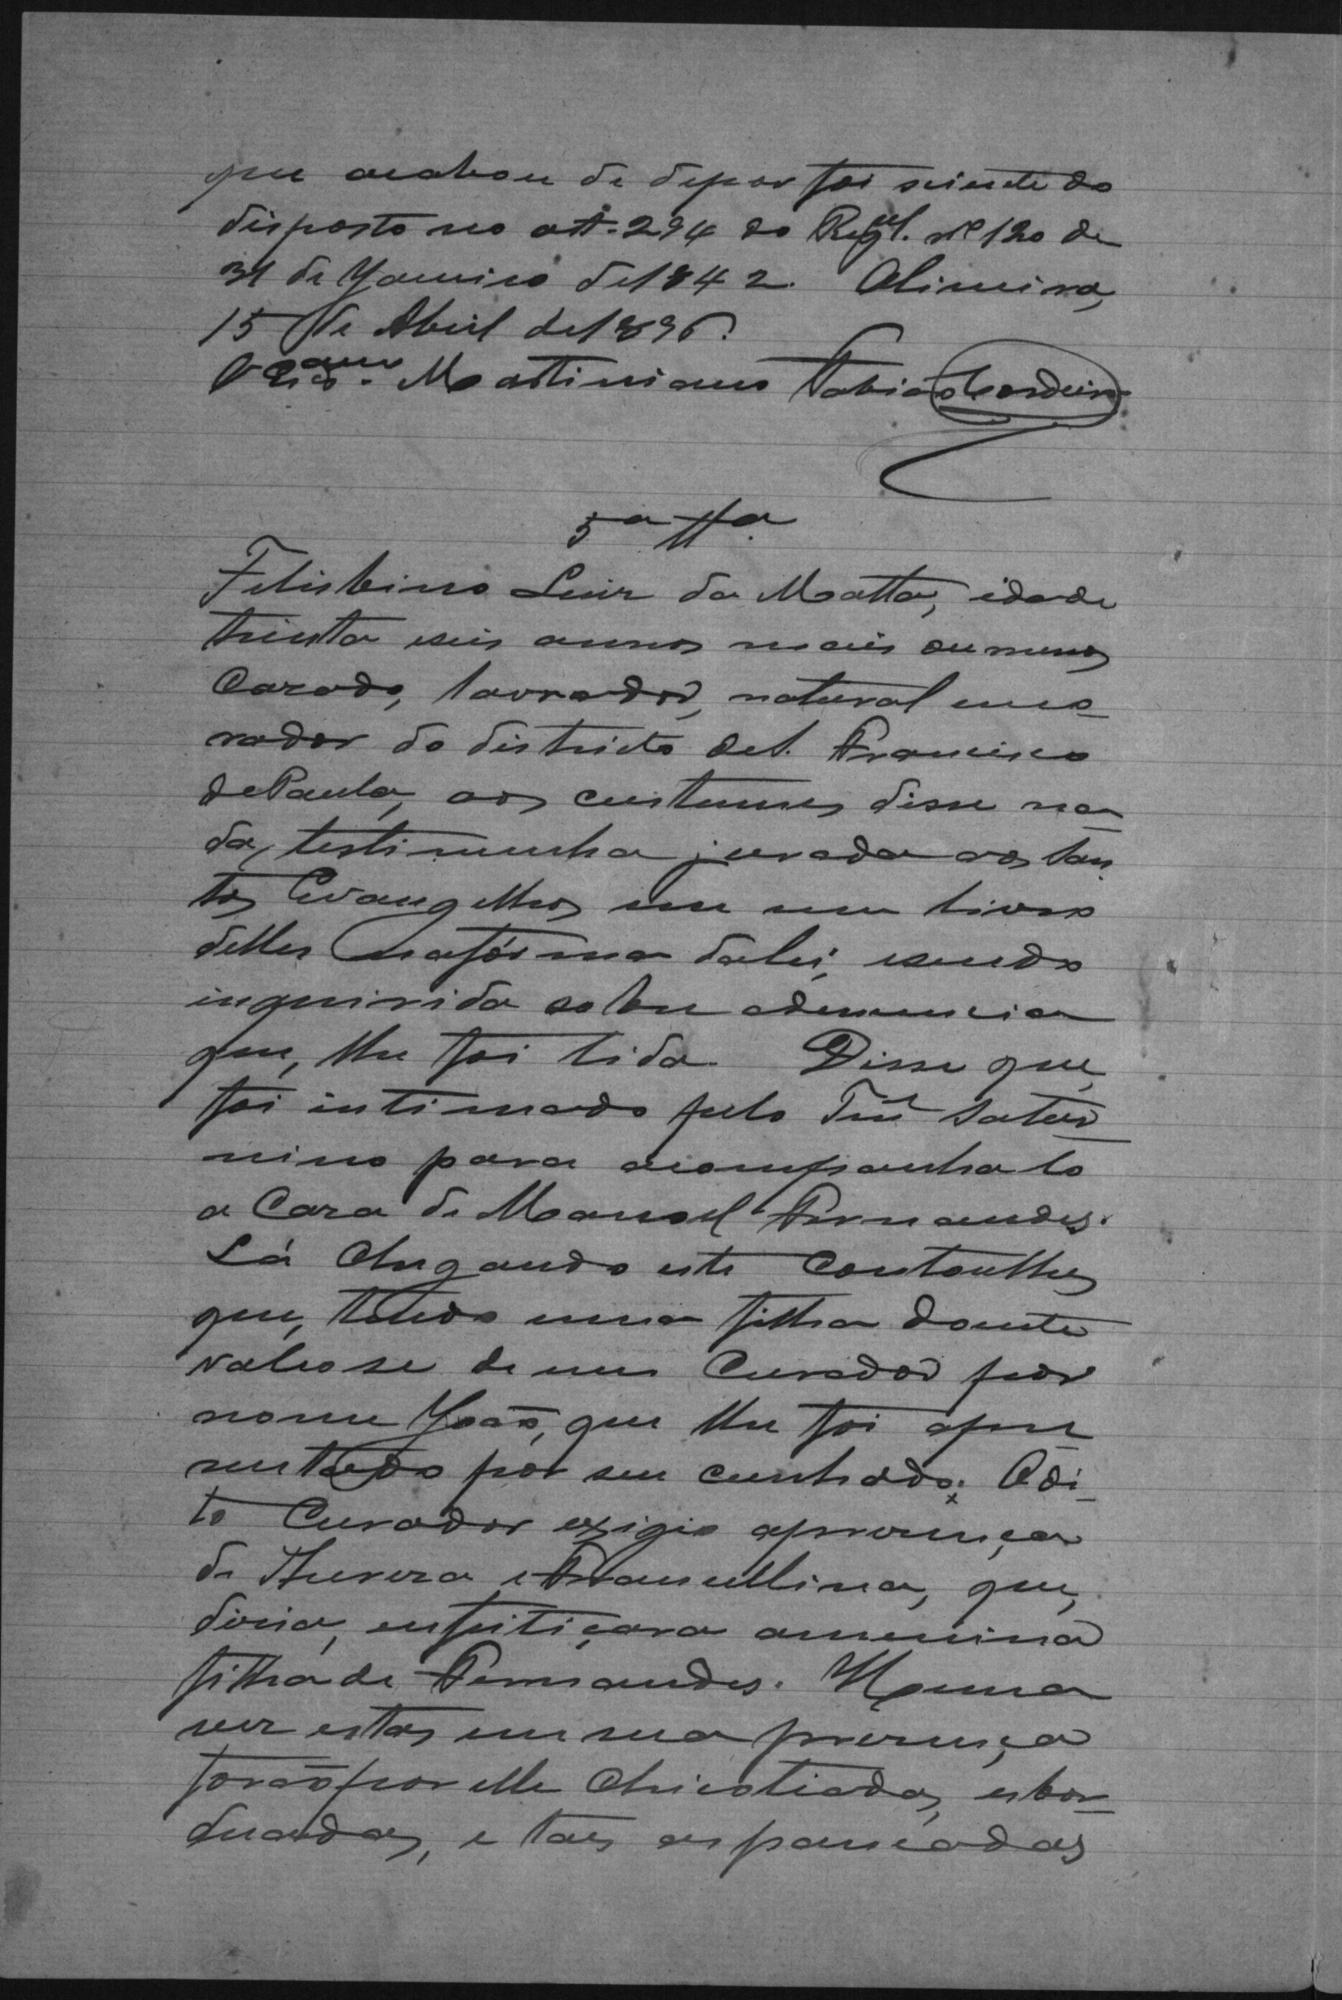 que acabou de depor foi sciente do
disposto no art. 294 do Regl. nº 120 de
31 de Janeiro de 1842. Olimeira,
15 de Abril de 1896.
Martiniano Fabião Cordeiro
5ª Ttª
Felisbino Luiz da Matta, idade
trinta e seis annos mais ou menos
Cazado, lavrador, natural e mo-
rador do districto de S. Francisco
de Paula, aos custumes disse na-
da, testimunha jurada aos San-
tos Evangelhos em um livro
delles na fórma da lei, e sendo
inquirida sobre a denuncia
que, lhe foi lida. Disse que,
foi intimado pelo Tnē Satur-
nino para acompanhalo
a Caza de Manoel Fernandes.
Lá Chegando este Contoulhes
que, tendo uma filha doente
valeo se de um Curador por
nome João, que lhe foi apre
zentado por seu cunhado. O di-
to Curador exigio a prezença
de Thereza e Francellina, que,
dizia, enfeitiçara a menina
filha de Fernandes. Huma
vez estas em sua prezença
forão por elle Chicotiadas, esbor-
duadas, e taes as pancadas